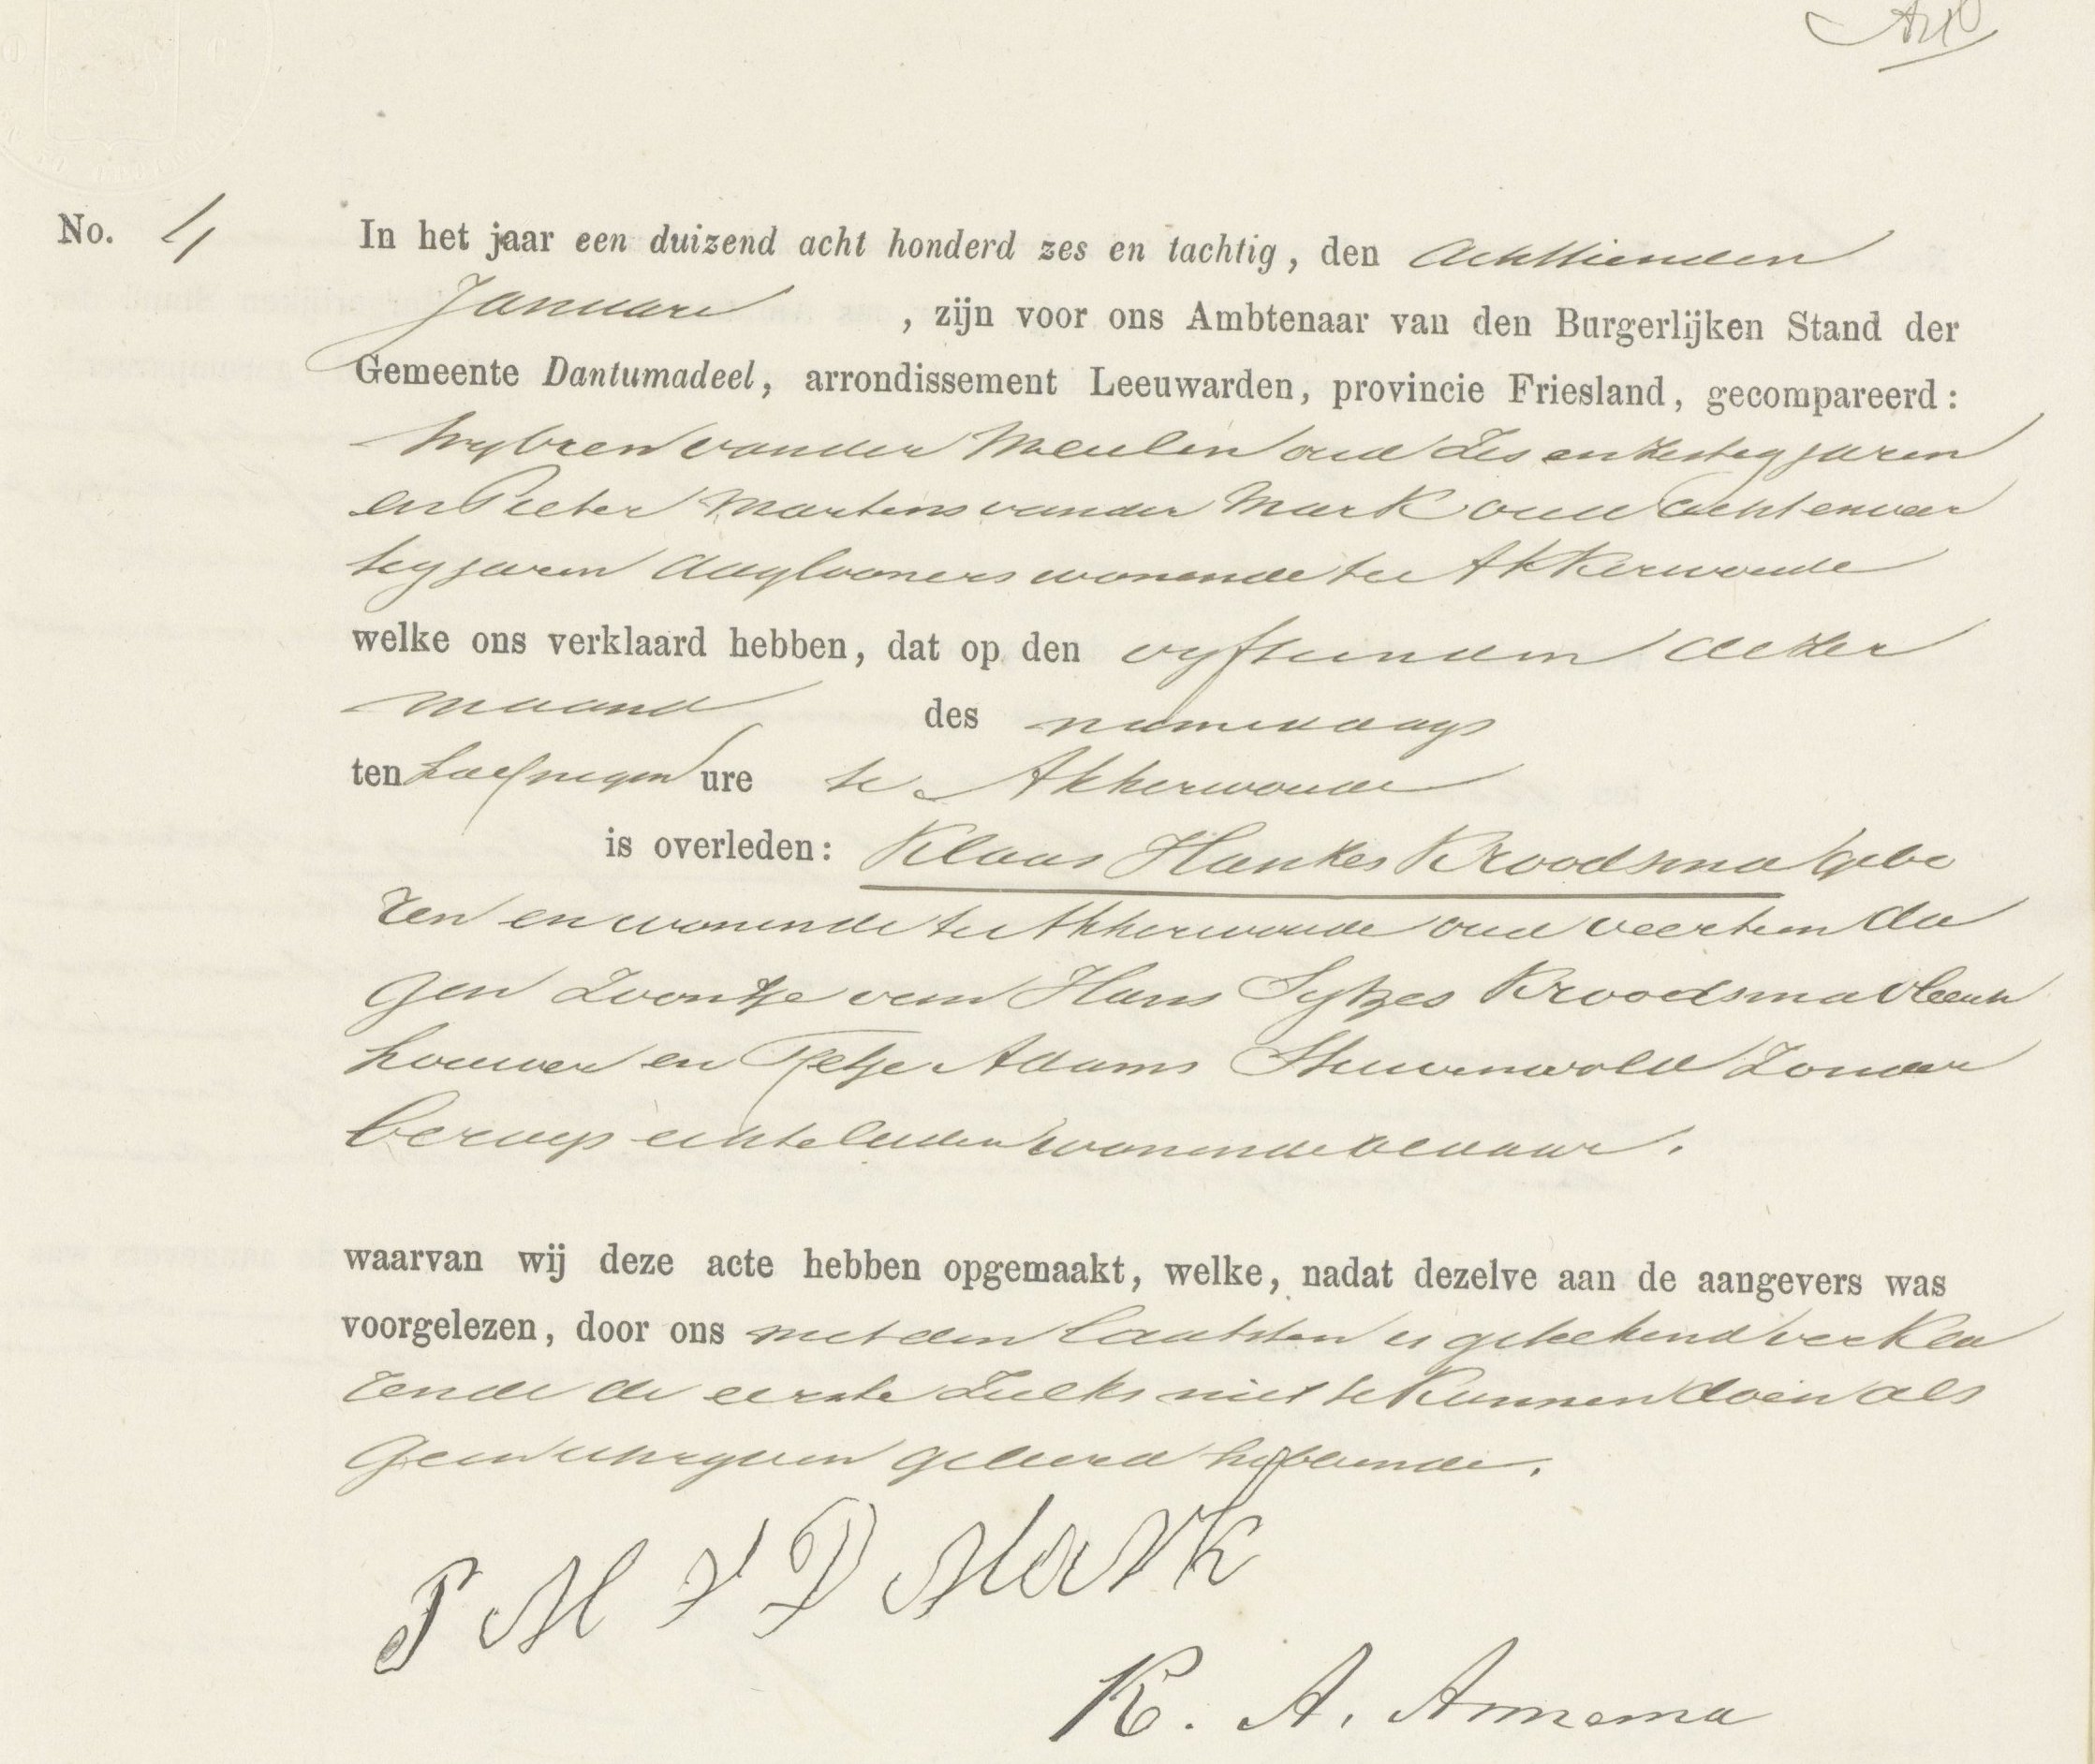 No. 4
In het jaar een duizend acht honderd zes en tachtig, den Achttienden
Januari , zijn voor ons Ambtenaar van den Burgerlijken Stand der
Gemeente Dantumadeel, arrondissement Leeuwarden, provincie Friesland, gecompareerd:
Wybren van der Meulen oud zes en zestig jaren
en Pieter Martens van der Mark oud acht en veer
tig jaren daglooners wonende te Akkerwoude
welke ons verklaard hebben, dat op den vyftienden dezer
maand des namiddags
ten half negen ure te Akkerwoude
is overleden: Klaas Hankes Broodsma gebo
ren en wonende te Akkerwoude oud veertien da
gen zoontje van Hans Sytzes Broodsma vleesch
houwer en Tjetje Adams Stuurwold zonder
beroep echtelieden wonende aldaar.
waarvan wij deze acte hebben opgemaakt, welke, nadat dezelve aan de aangevers was
voorgelezen, door ons met den laatsten is geteekend verkla
rende de eerste zulks niet te kunnen doen als
geen schryven geleerd hebbende.
P M v D Mark
K. A. Annema